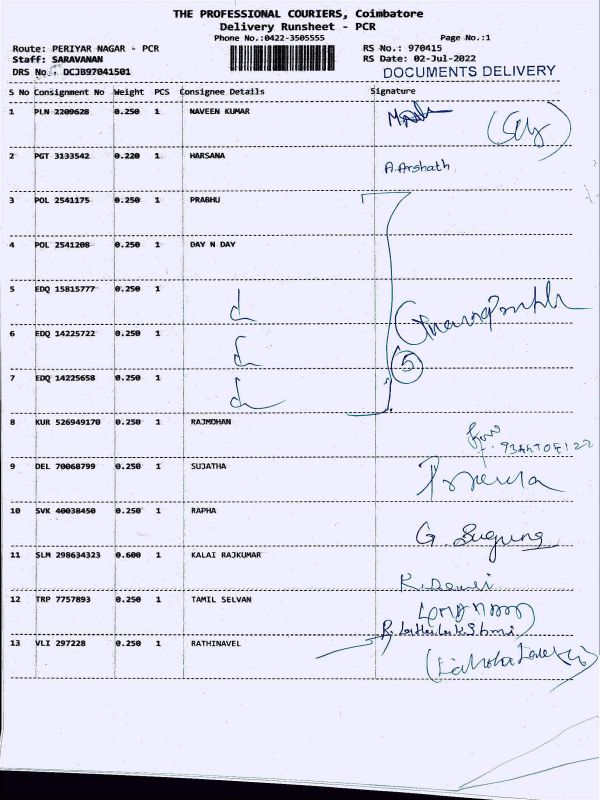 THE PROFESSIONAL COURIERS, Coimbatore
Delivery Runsheet - PCR
Phone No.:0422-3505555
Page No.:1
Route: PERIYAR NAGAR - PCR
RS No.: 970415
Staff: SARAVANAN
RS Date: 02-Jul-2022
DRS No.: DCJB97041501
DOCUMENTS DELIVERY
S No Consignment No Weight PCS Consignee Details Signature
1 PLN 2209628 0.250 1 NAVEEN KUMAR
2 PGT 3133542 0.220 1 HARSANA A.Arshath
3 POL 2541175 0.250 1 PRABHU
4 POL 2541208 0.250 1 DAY N DAY
5 EDQ 15815777 0.250 1
6 EDQ 14225722 0.250 1
5
7 EDQ 14225658 0.250 1
8 KUR 526949170 0.250 1 RAJMOHAN
9 DEL 70068799 0.250 1 SUJATHA
10 SVK 40038450 0.250 1 RAPHA G. Suguna
11 SLM 298634323 0.600 1 KALAI RAJKUMAR
12 TRP 7757893 0.250 1 TAMIL SELVAN
13 VLI 297228 0.250 1 RATHINAVEL